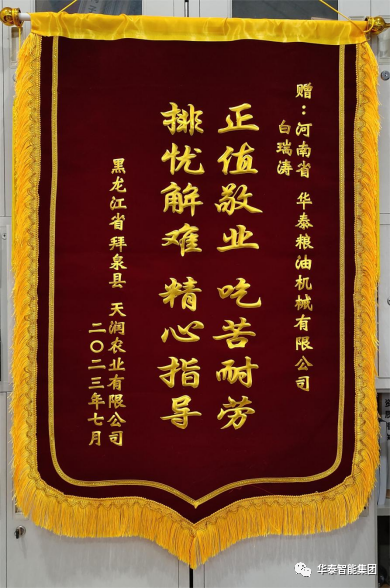 赠：河南省 华泰粮油机械有限公司
白瑞涛
正值敬业 吃苦耐劳
排忧解难 精心指导
黑龙江省拜泉县 天润农业有限公司
二〇二三年七月
华泰智能集团